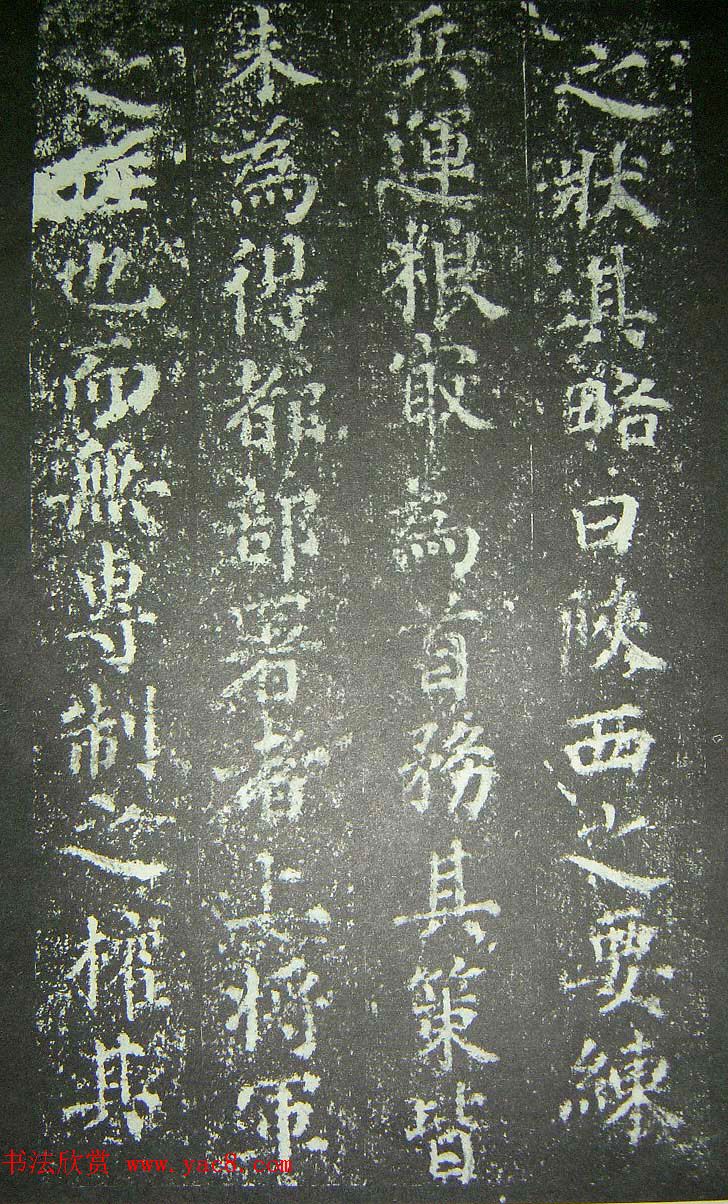 之狀其略曰陝西之要練
兵運粮最為首務其策皆
未為得都部署者上將軍
之任也而無專制之權其
书法欣赏 www.yac8.com